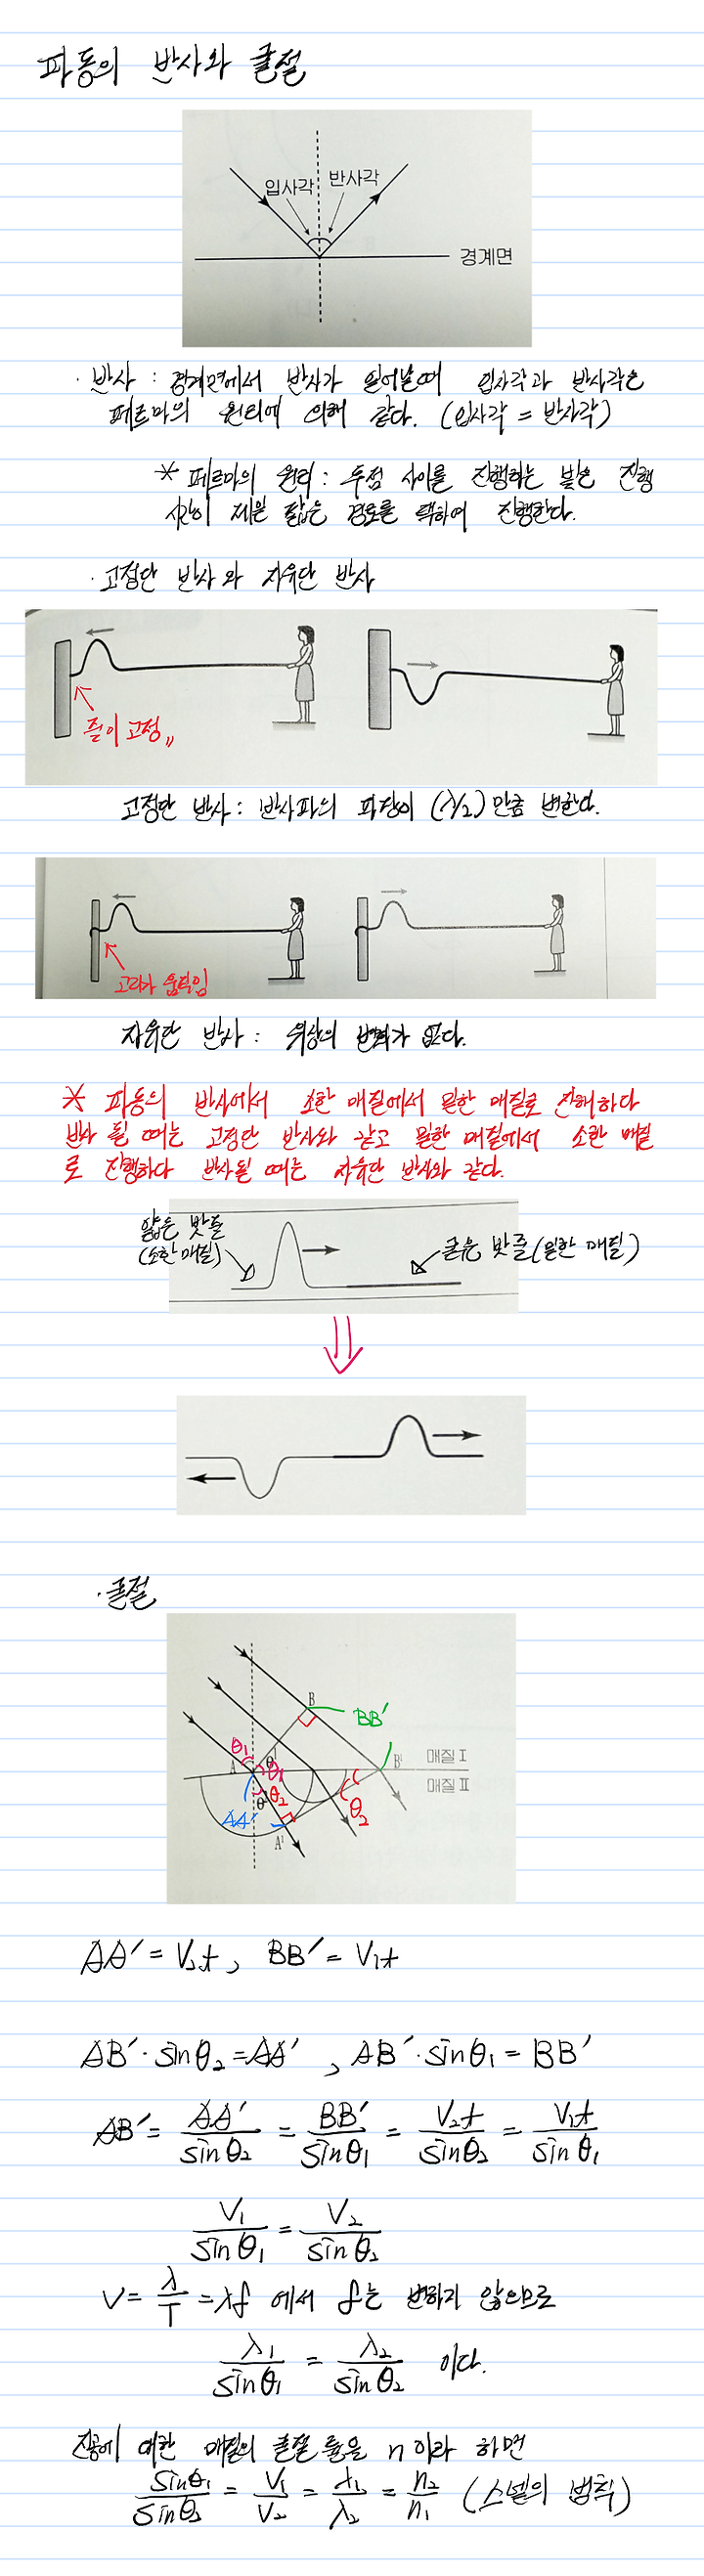 파동의 반사와 굴절
입사각 반사각
경계면
· 반사 : 경계면에서 반사가 일어날때 입사각과 반사각은
페르마의 원리에 의해 같다. (입사각 = 반사각)
* 페르마의 원리 : 두점 사이를 진행하는 빛은 진행
시간이 제일 짧은 경로를 택하여 진행한다.
· 고정단 반사와 자유단 반사
줄이 고정
고정단 반사 : 반사파의 파장이 (λ/2) 만큼 변한다.
고리가 움직임
자유단 반사 : 위상의 변화가 없다.
* 파동의 반사에서 소한 매질에서 밀한 매질로 진행하다
반사 될 때는 고정단 반사와 같고 밀한 매질에서 소한 매질
로 진행하다 반사될 때는 자유단 반사와 같다.
얇은 밧줄
(소한 매질)
굵은 밧줄 (밀한 매질)
· 굴절
B BB'
θ₁ θ A θ₁ B' 매질 I
매질 II
θ θ₂ θ₂
AA' A'
AA' = V₂t , BB' = V₁t
AB'·sinθ₂ = AA' , AB'·sinθ₁ = BB'
AB' = AA'/sinθ₂ = BB'/sinθ₁ = V₂t/sinθ₂ = V₁t/sinθ₁
V₁/sinθ₁ = V₂/sinθ₂
V = λ/T = λf 에서 f는 변하지 않으므로
λ₁/sinθ₁ = λ₂/sinθ₂ 이다.
진공에 대한 매질의 굴절률을 n 이라 하면
sinθ₁/sinθ₂ = V₁/V₂ = λ₁/λ₂ = n₂/n₁ (스넬의 법칙)